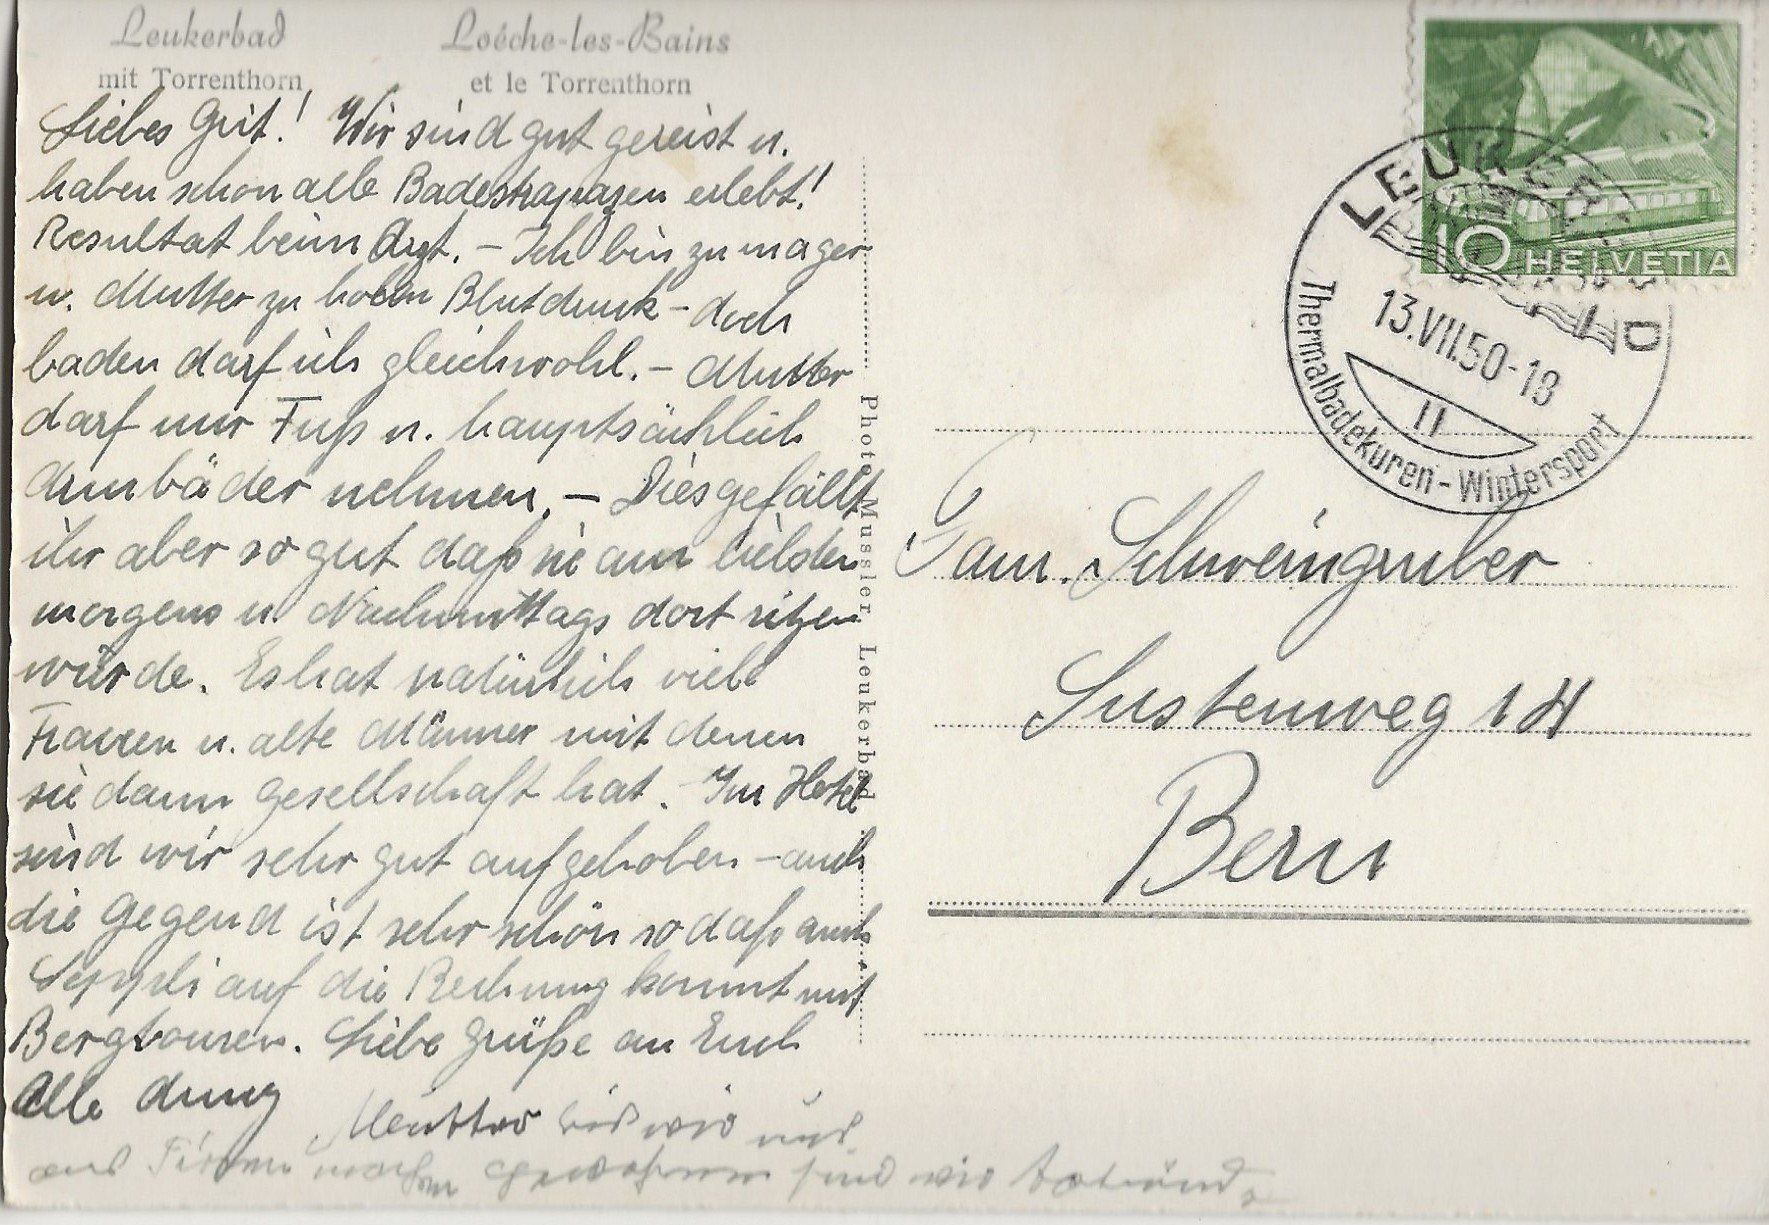 Leukerbad
mit Torrenthorn
Loèche-les-Bains
et le Torrenthorn
Liebes Grit! Wir sind gut gereist u.
haben schon alle Badestrapazen erlebt!
Resultat beim Arzt. – Ich bin zu mager
u. Mutter zu hohen Blutdruck – doch
baden darf ich gleichwohl. – Mutter
darf nur Fuß u. hauptsächlich
Armbäder nehmen. – Dies gefällt
ihr aber so gut daß sie am liebsten
morgens u. Nachmittags dort sitzen
würde. Es hat natürlich viele
Frauen u. alte Männer mit denen
sie dann gesellschaft hat. – Im Hotel
sind wir sehr gut aufgehoben – auch
die Gegend ist sehr schön so daß auch
Seppli auf die Rechnung kommt mit
Bergtouren. Liebe Grüße an Euch
Alle
Mutter
sind wir
Photo Mussler, Leukerbad
10 HELVETIA
LEUKERBAD
13.VII.50-18
Thermalbadekuren - Wintersport
Fam. Schweingruber
Sustenweg 14
Bern